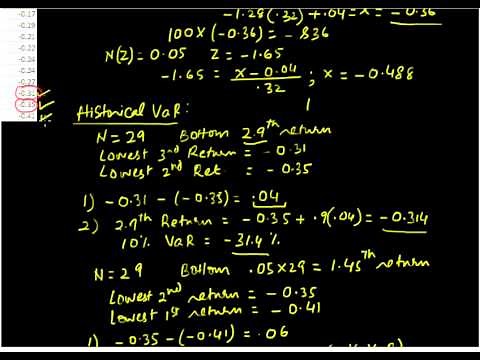 -0.17
-0.21
-0.22
-0.24
-0.27
-0.31
-0.35
-0.41
-1.28(.32) + .04 = x = -0.36
100 x (-0.36) = -$36
N(Z) = 0.05 Z = -1.65
-1.65 = x - 0.04 / .32 ; x = -0.488
Historical VaR:
N = 29 Bottom 2.9th return
Lowest 3rd Return = -0.31
Lowest 2nd Ret. = -0.35
1) -0.31 - (-0.35) = .04
2) 2.9th Return = -0.35 + .9(.04) = -0.314
10% VaR = -31.4%
N = 29 Bottom .05 x 29 = 1.45th return
Lowest 2nd return = -0.35
Lowest 1st return = -0.41
1) -0.35 - (-0.41) = .06